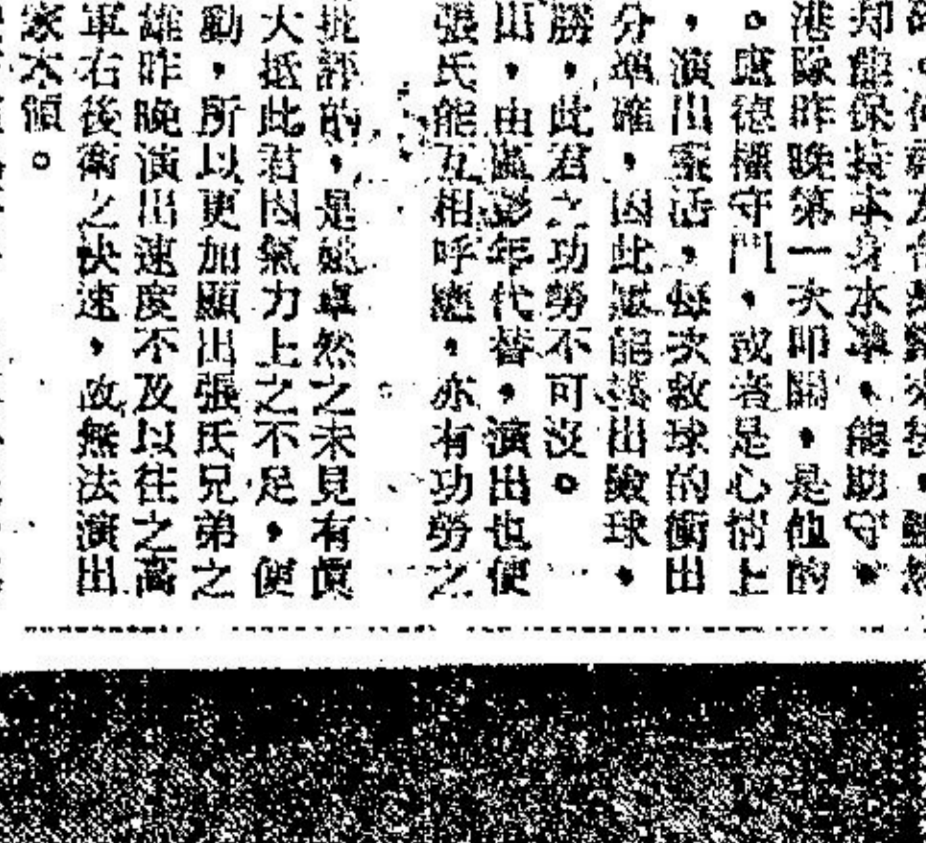 却能保持本身水準，能助守，
港隊昨晚第一次即開，是他的
。盧德權守門，或者是心情上
，演出靈活，每次救球的衝出
分準確，因此還能救出險球，
勝，此君之功勞不可沒。
出，由盧影年代替，演出也便
張氏能互相呼應，亦有功勞之
批評的，是姚卓然之未見有賣
大抵此君因氣力上之不足，便
勳，所以更加顯出張氏兄弟之
雄昨晚演出速度不及以往之高
軍右後衛之快速，故無法演出
家本領。